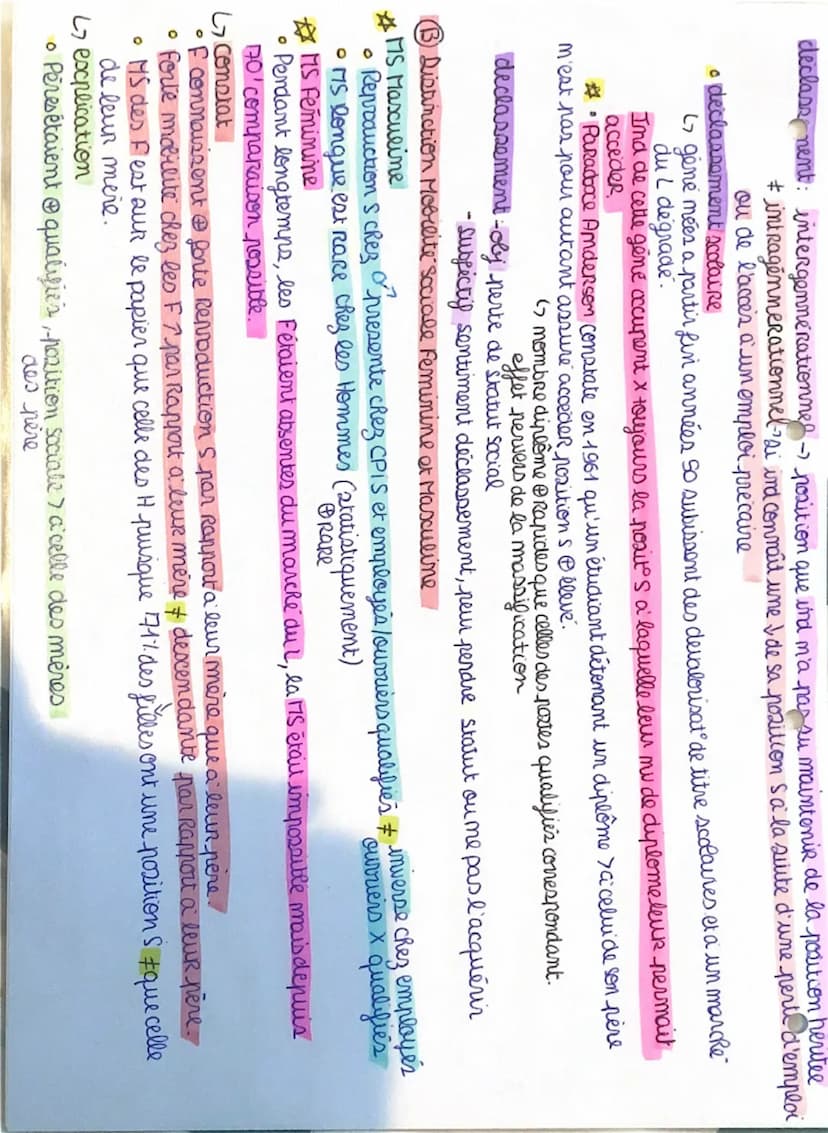 déclassement : intergénnérationnel → position que ind n'a pas su maintenir de la position héritée
≠ intragénnerationnel → si ind connaît une ↓ de sa position S à la suite d'une perte d'emploi
ou de l'accès à un emploi précaire
• déclassement scolaire
↳ géné nées a partir fin années 50 subissent des devalorisat° de titre scolaires et a un marché
du L dégradé.
Ind de cette géné occupent x toujours la posit° S à laquelle leur nv de diplome leur permait
accéder.
☆ • Paradoxe Anderson constate en 1961 qu'un étudiant détenant un diplôme > à celui de son père
n'est pas pour autant assuré accéder position S ⊕ élevé.
↳ nombre diplôme ⊕ rapides que celles des postes qualifiés correspondant.
effet pervers de la massification
déclassement - obj perte de statut social
- subjectif sentiment déclassement, peur perdre statut ou ne pas l'acquérir
Ⓑ Distinction Mobilité Sociale Féminine et Masculine
☆ MS Masculine
• Reproduction S chez ♂ présente chez CPIS et employés/ouvriers qualifiés ≠ inverse chez employés
ouvriers x qualifiés
• MS longue est rare chez les Hommes (statistiquement)
⊕ RARE
☆ MS Féminine
• Pendant longtemps, les F étaient absentes du marché du L, la MS était impossible mais depuis
70' comparaison possible.
↳ Constat
• F connaissent ⊕ forte Reproduction S par rapport à leur mère que à leur père.
• Forte mobilité chez les F ↗ par Rapport à leur mère ≠ descendante par rapport à leur père.
• MS des F est sur le papier que celle des H puisque 71% des filles ont une position S ≠ que celle
de leur mère.
↳ explication
• Pères étaient ⊕ qualifiés, position sociale > à celle des mères
des père